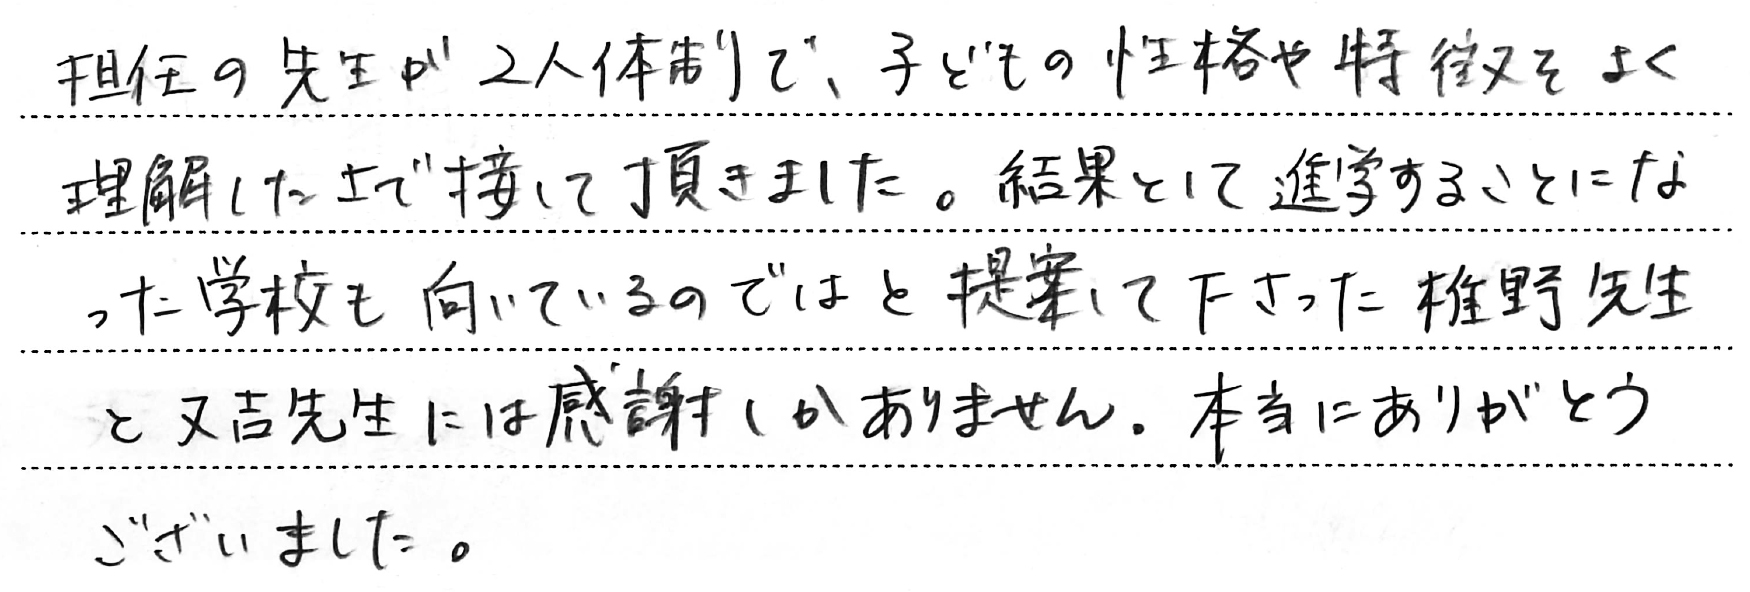 担任の先生が2人体制で、子どもの性格や特徴をよく
理解した上で接して頂きました。結果として進学することにな
った学校も向いているのではと提案して下さった椎野先生
と又吉先生には感謝しかありません。本当にありがとう
ございました。